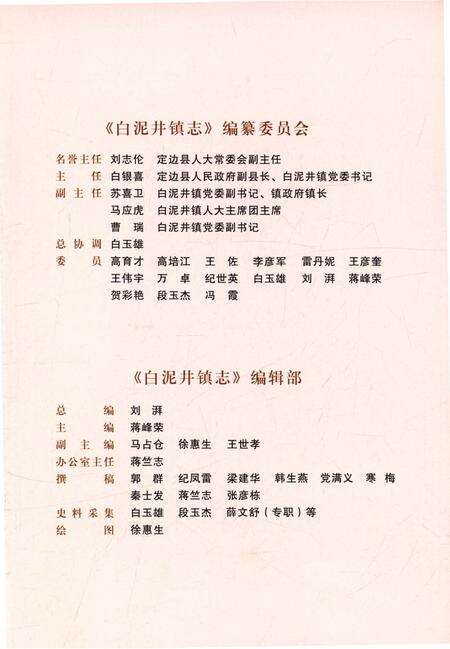 《白泥井镇志》编纂委员会
名誉主任 刘志伦 定边县人大常委会副主任
主 任 白银喜 定边县人民政府副县长、白泥井镇党委书记
副 主 任 苏喜卫 白泥井镇党委副书记、镇政府镇长
马应虎 白泥井镇人大主席团主席
曹 瑞 白泥井镇党委副书记
总 协 调 白玉雄
委 员 高育才 高培江 王 佐 李彦军 雷丹妮 王彦奎
王伟宇 万 卓 纪世英 白玉雄 刘 湃 蒋峰荣
贺彩艳 段玉杰 冯 霞
《白泥井镇志》编辑部
总 编 刘 湃
主 编 蒋峰荣
副 主 编 马占仓 徐惠生 王世孝
办公室主任 蒋竺志
撰 稿 郭 群 纪凤雷 梁建华 韩生燕 党满义 寒 梅
秦士发 蒋竺志 张彦栋
史料采集 白玉雄 段玉杰 薛文舒（专职）等
绘 图 徐惠生